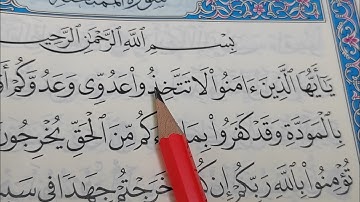 سورة الممتحنة
بِسْمِ اللَّهِ الرَّحْمَٰنِ الرَّحِيمِ
يَا أَيُّهَا الَّذِينَ ءَامَنُوا لَا تَتَّخِذُوا عَدُوِّي وَعَدُوَّكُمْ
بِالْمَوَدَّةِ وَقَدْ كَفَرُوا بِمَا كُم مِّنَ الْحَقِّ يُخْرِجُونَ
تُؤْمِنُوا بِاللَّهِ رَبِّكُمْ إِن خَرَجْتُمْ جِهَادًا فِي